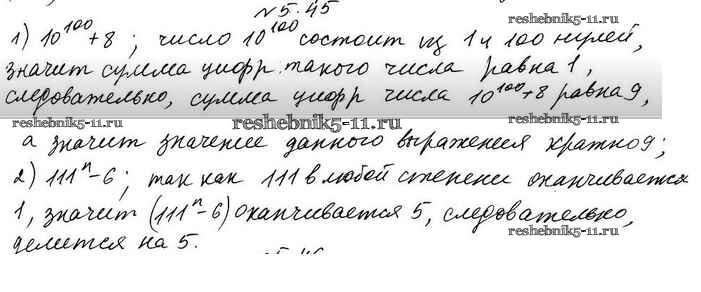 №5.45
reshebnik5-11.ru
1) 10^100+8 ; число 10^100 состоит из 1 и 100 нулей,
значит сумма цифр такого числа равна 1,
следовательно, сумма цифр числа 10^100+8 равна 9,
reshebnik5-11.ru reshebnik5-11.ru reshebnik5-11.ru
а значит значение данного выражения кратно 9;
2) 111^n-6; так как 111 в любой степени оканчивается
1, значит (111^n-6) оканчивается 5, следовательно,
reshebnik5-11.ru
делится на 5.